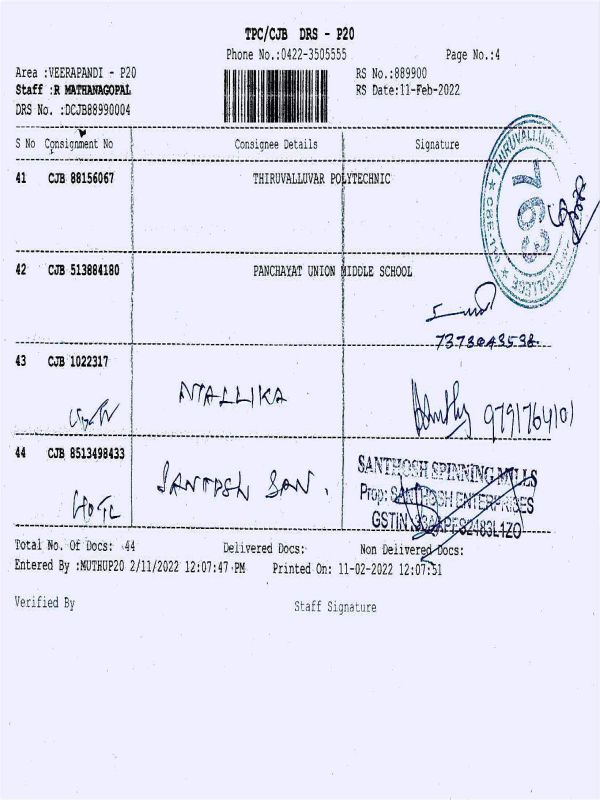 TPC/CJB DRS - P20
Phone No.:0422-3505555 Page No.:4
Area :VEERAPANDI - P20 RS No.:889900
Staff :R MATHANAGOPAL RS Date:11-Feb-2022
DRS No. :DCJB88990004
S No Consignment No Consignee Details Signature
41 CJB 88156067 THIRUVALLUVAR POLYTECHNIC
THIRUVALLUVAR
763
COLLEGE
42 CJB 513884180 PANCHAYAT UNION MIDDLE SCHOOL
43 CJB 1022317
9791764101
44 CJB 8513498433
SANTHOSH SPINNING MILLS
Prop: SANTHOSH ENTERPRISES
GSTIN
Total No. Of Docs: 44 Delivered Docs: Non Delivered Docs:
Entered By :MUTHUP20 2/11/2022 12:07:47 PM Printed On: 11-02-2022 12:07:51
Verified By Staff Signature